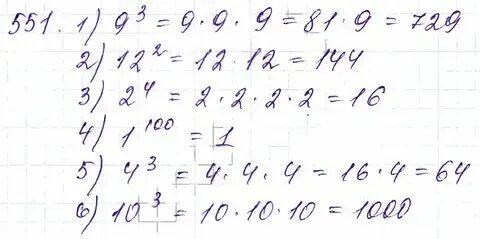 551. 1) 9³ = 9 · 9 · 9 = 81 · 9 = 729
2) 12² = 12 · 12 = 144
3) 2⁴ = 2 · 2 · 2 · 2 = 16
4) 1¹⁰⁰ = 1
5) 4³ = 4 · 4 · 4 = 16 · 4 = 64
6) 10³ = 10 · 10 · 10 = 1000